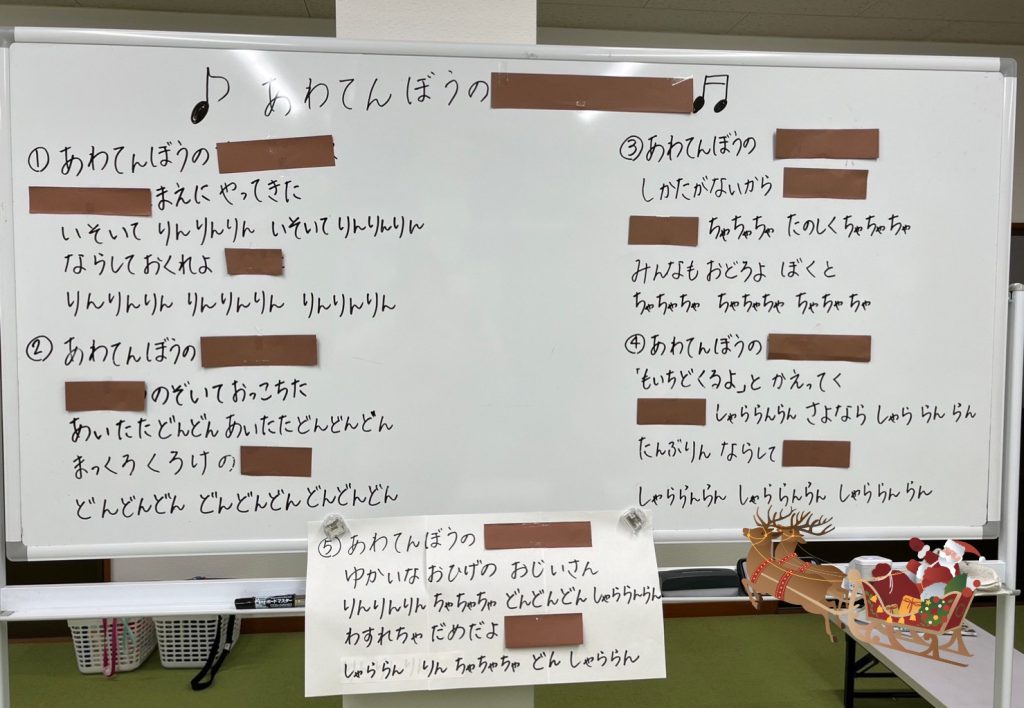 あわてんぼうの
① あわてんぼうの
まえに やってきた
いそいで りんりんりん いそいで りんりんりん
ならしておくれよ
りんりんりん りんりんりん りんりんりん
② あわてんぼうの
のぞいて おっこちた
あいたたどんどん あいたたどんどんどん
まっくろ くろけの
どんどんどん どんどんどん どんどんどん
③ あわてんぼうの
しかたがないから
ちゃちゃちゃ たのしくちゃちゃちゃ
みんなも おどろよ ぼくと
ちゃちゃちゃ ちゃちゃちゃ ちゃちゃちゃ
④ あわてんぼうの
「もいちどくるよ」と かえってく
しゃららんらん さよなら しゃらららんらん
たんぶりん ならして
しゃららんらん しゃららんらん しゃららんらん
⑤ あわてんぼうの
ゆかいな おひげの おじいさん
りんりんりん ちゃちゃちゃ どんどんどん しゃららんらん
わすれちゃ だめだよ
しゃららん りん ちゃちゃちゃ どん しゃららん